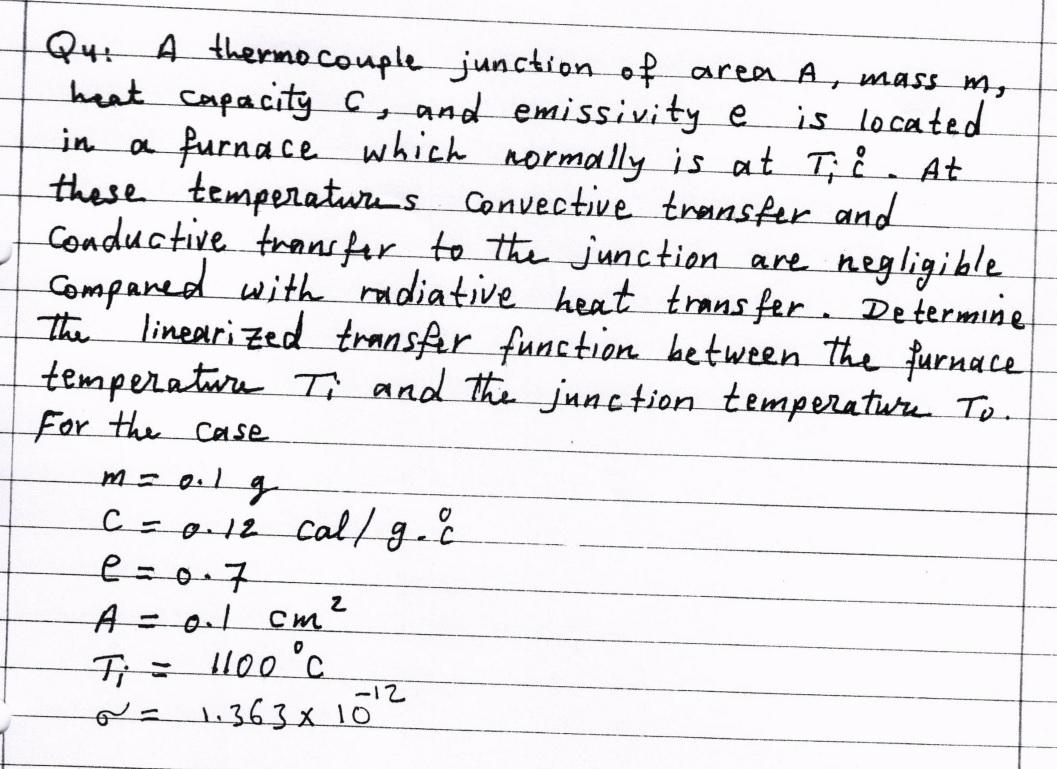 Q4: A thermocouple junction of area A, mass m,
heat capacity C, and emissivity e is located
in a furnace which normally is at Ti °C. At
these temperatures convective transfer and
conductive transfer to the junction are negligible
compared with radiative heat transfer. Determine
the linearized transfer function between the furnace
temperature Ti and the junction temperature To.
For the case
m = 0.1 g
C = 0.12 cal/g.°C
e = 0.7
A = 0.1 cm²
Ti = 1100 °C
σ = 1.363 x 10⁻¹²